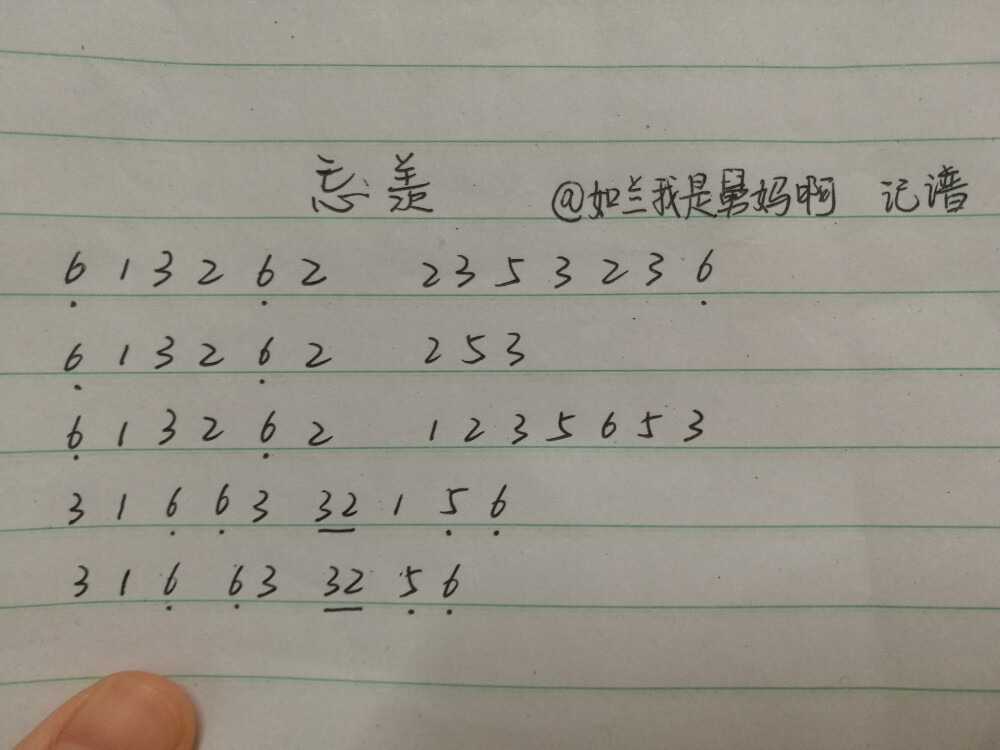 忘羡 @如兰我是舅妈啊 记谱
6̣ 1 3 2 6̣ 2 2 3 5 3 2 3 6̣
6̣ 1 3 2 6̣ 2 2 5 3
6̣ 1 3 2 6̣ 2 1 2 3 5 6 5 3
3 1 6̣ 6̣ 3 3̲2̲ 1 5̣ 6̣
3 1 6̣ 6̣ 3 3̲2̲ 5̣ 6̣